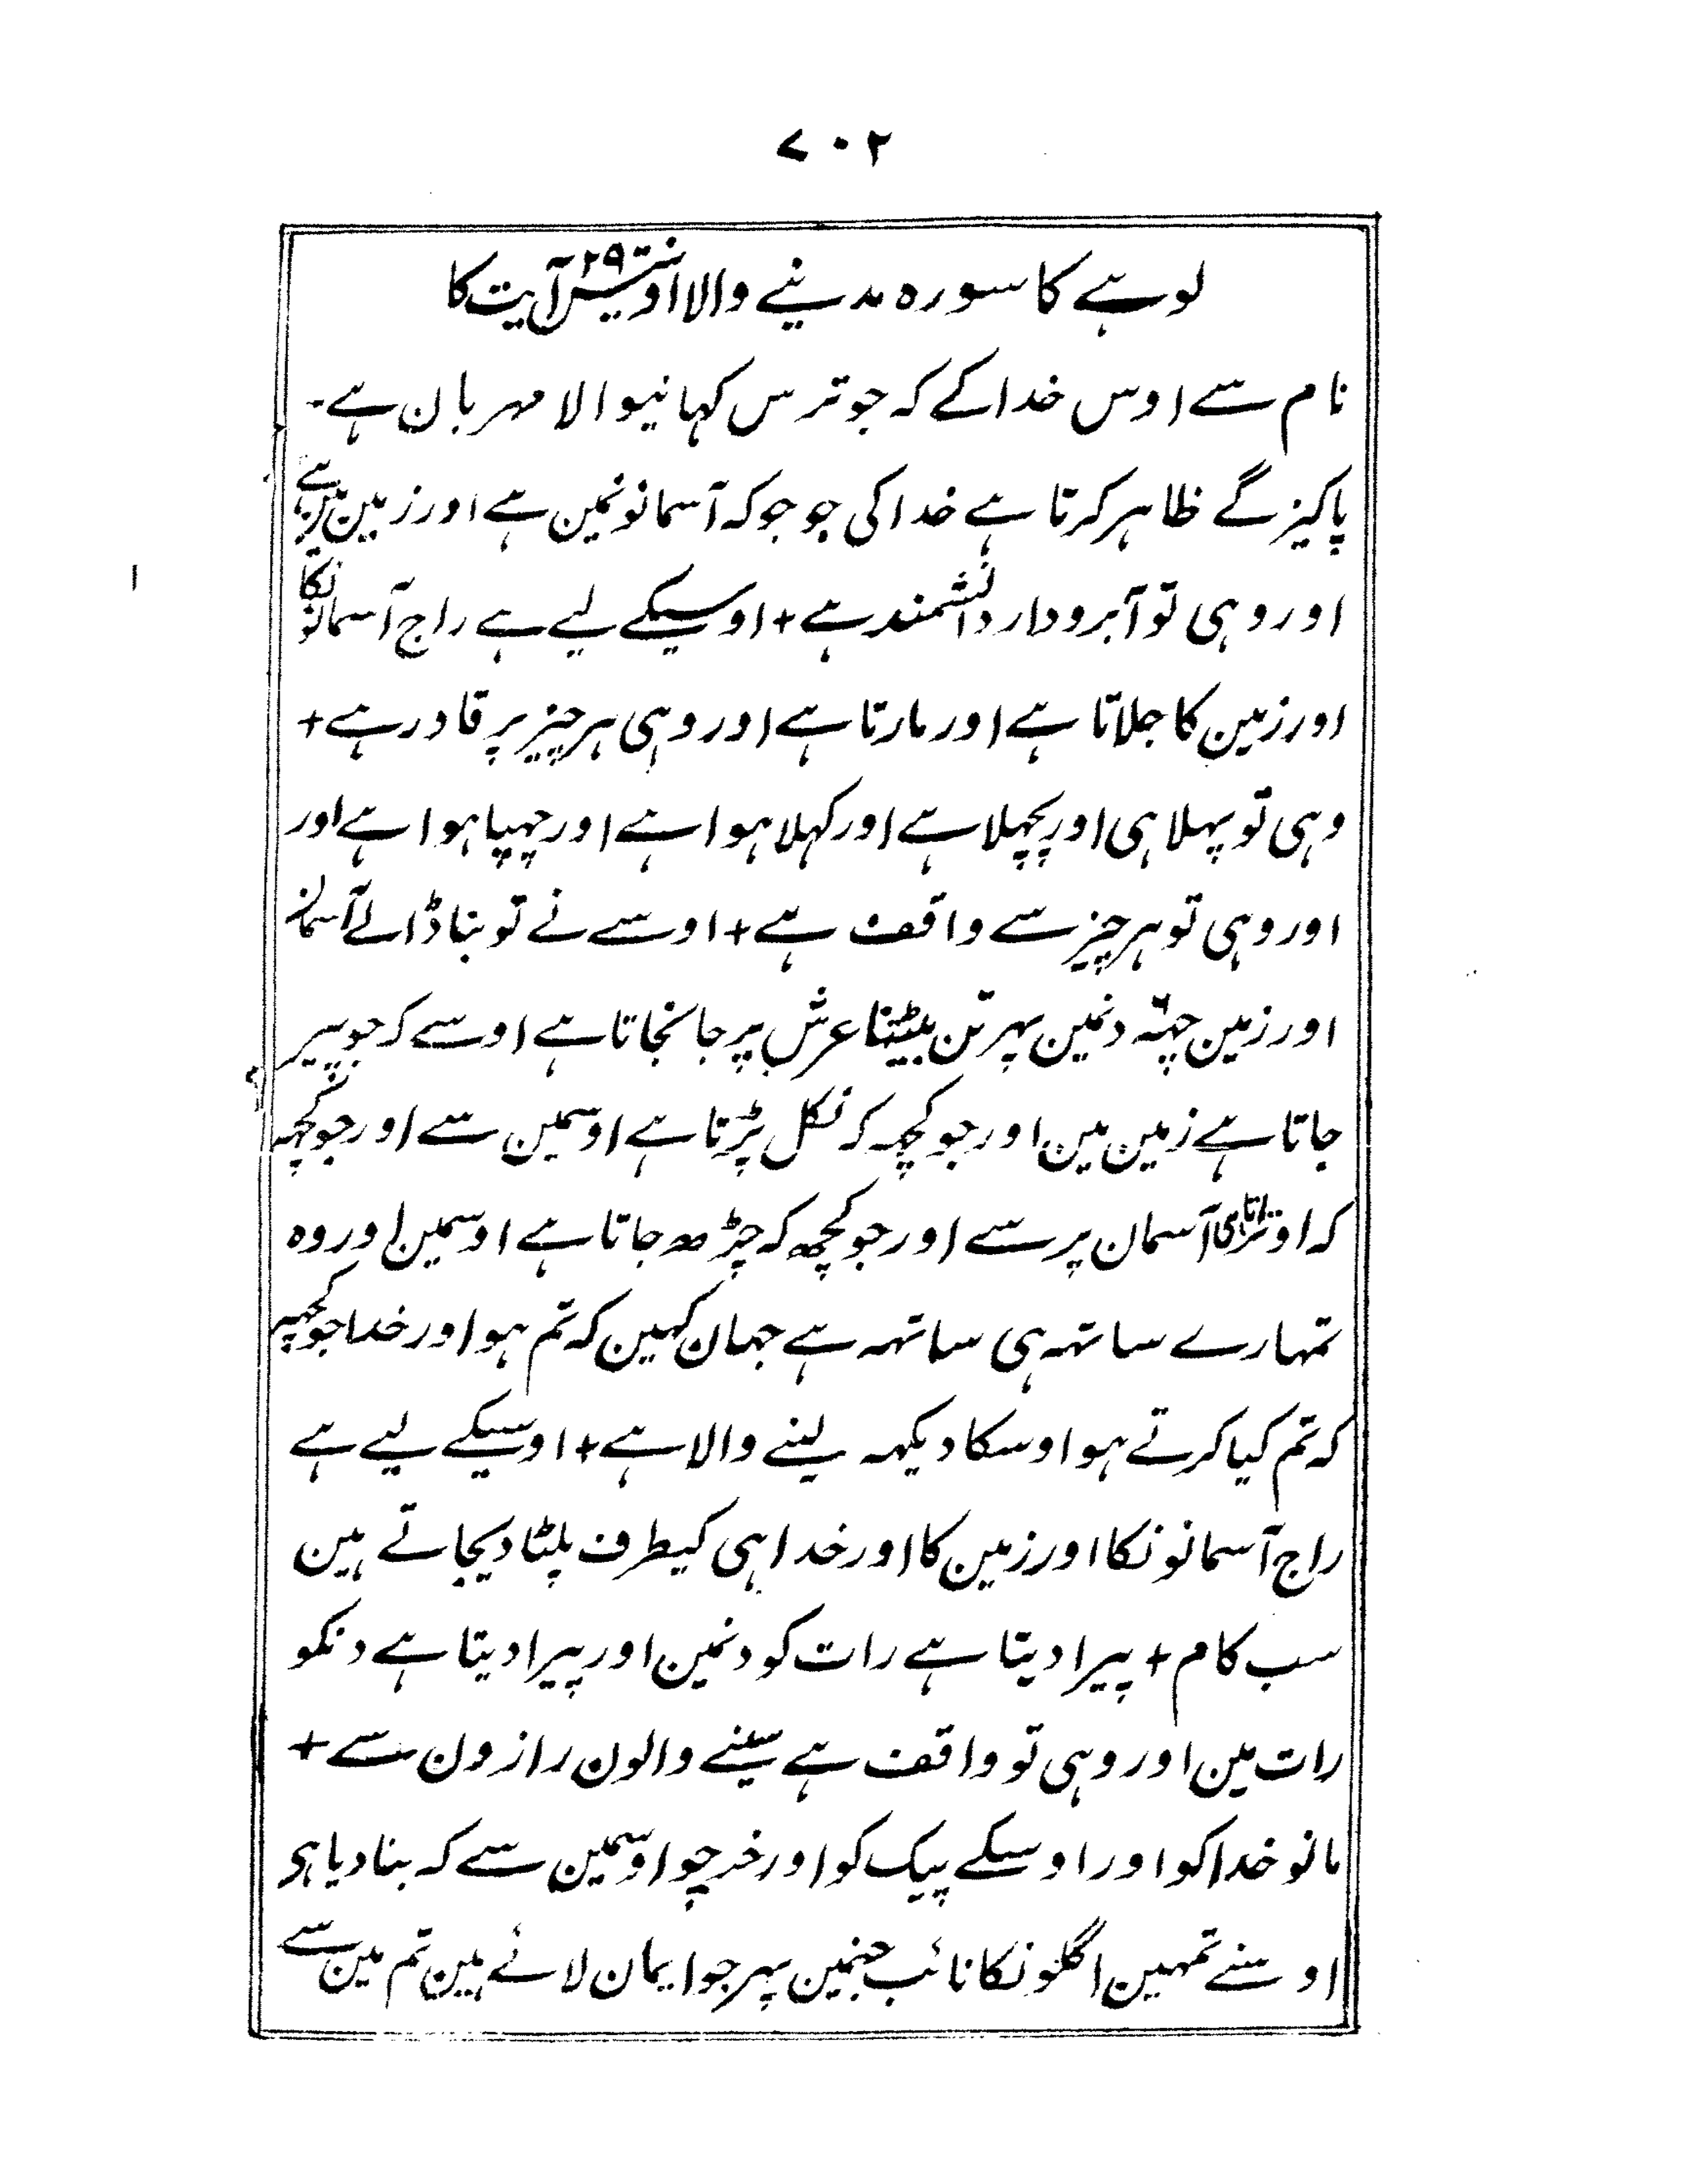 ۷۰۲
لوہے کا سورہ مدینے والا اونتیس ۲۹ آیت کا
نام سے اوس خدا کے کہ جو ترس کہانیوالا مہربان ہے-
پاکیزگے ظاہر کرتا ہے خدا کی جو جو کہ آسمانونمین ہے اور زمین مین ہے
اور وہی تو آبرودار دانشمند ہے + اوسیکے لیے ہے راج آسمانونکا
اور زمین کا جلاتا ہے اور مارتا ہے اور وہی ہر چیز پر قادر ہے +
وہی تو پہلا ہی اور پچہلا ہے اور کہلا ہوا ہے اور چہپا ہوا ہے اور
اور وہی تو ہر چیز سے واقف ہے + اوسے نے تو بنا ڈالے آسمان
اور زمین چہٹہ دنمین پہر تن بیٹہنا عرش پر جانجاتا ہے اوسے کہ جو پیر
جاتا ہے زمین مین اور جو کچہہ کہ نکل پڑتا ہے اوسمین سے اور جو کچہہ
کہ اوترتا ہی آسمان پر سے اور جو کچھ کہ چڑھ جاتا ہے اوسمین اور وہ
تمہارے ساتہہ ہی ساتہہ ہے جہان کہین کہ تم ہو اور خدا جو کچہہ
کہ تم کیا کرتے ہو اوسکا دیکہہ لینے والا ہے + اوسیکے لیے ہے
راج آسمانونکا اور زمین کا اور خدا ہی کیطرف پلٹا دیجاتے ہین
سب کام + پیرا دیتا ہے رات کو دنمین اور پیرا دیتا ہے دنکو
رات مین اور وہی تو واقف ہے سینے والون رازون سے +
مانو خدا کو اور اوسکے پیک کو اور خرچو اوسمین سے کہ بنا دیا ہی
اوسنے تمہین اگلونکا نائب جنمین پہر جو ایمان لائے ہین تم مین سے